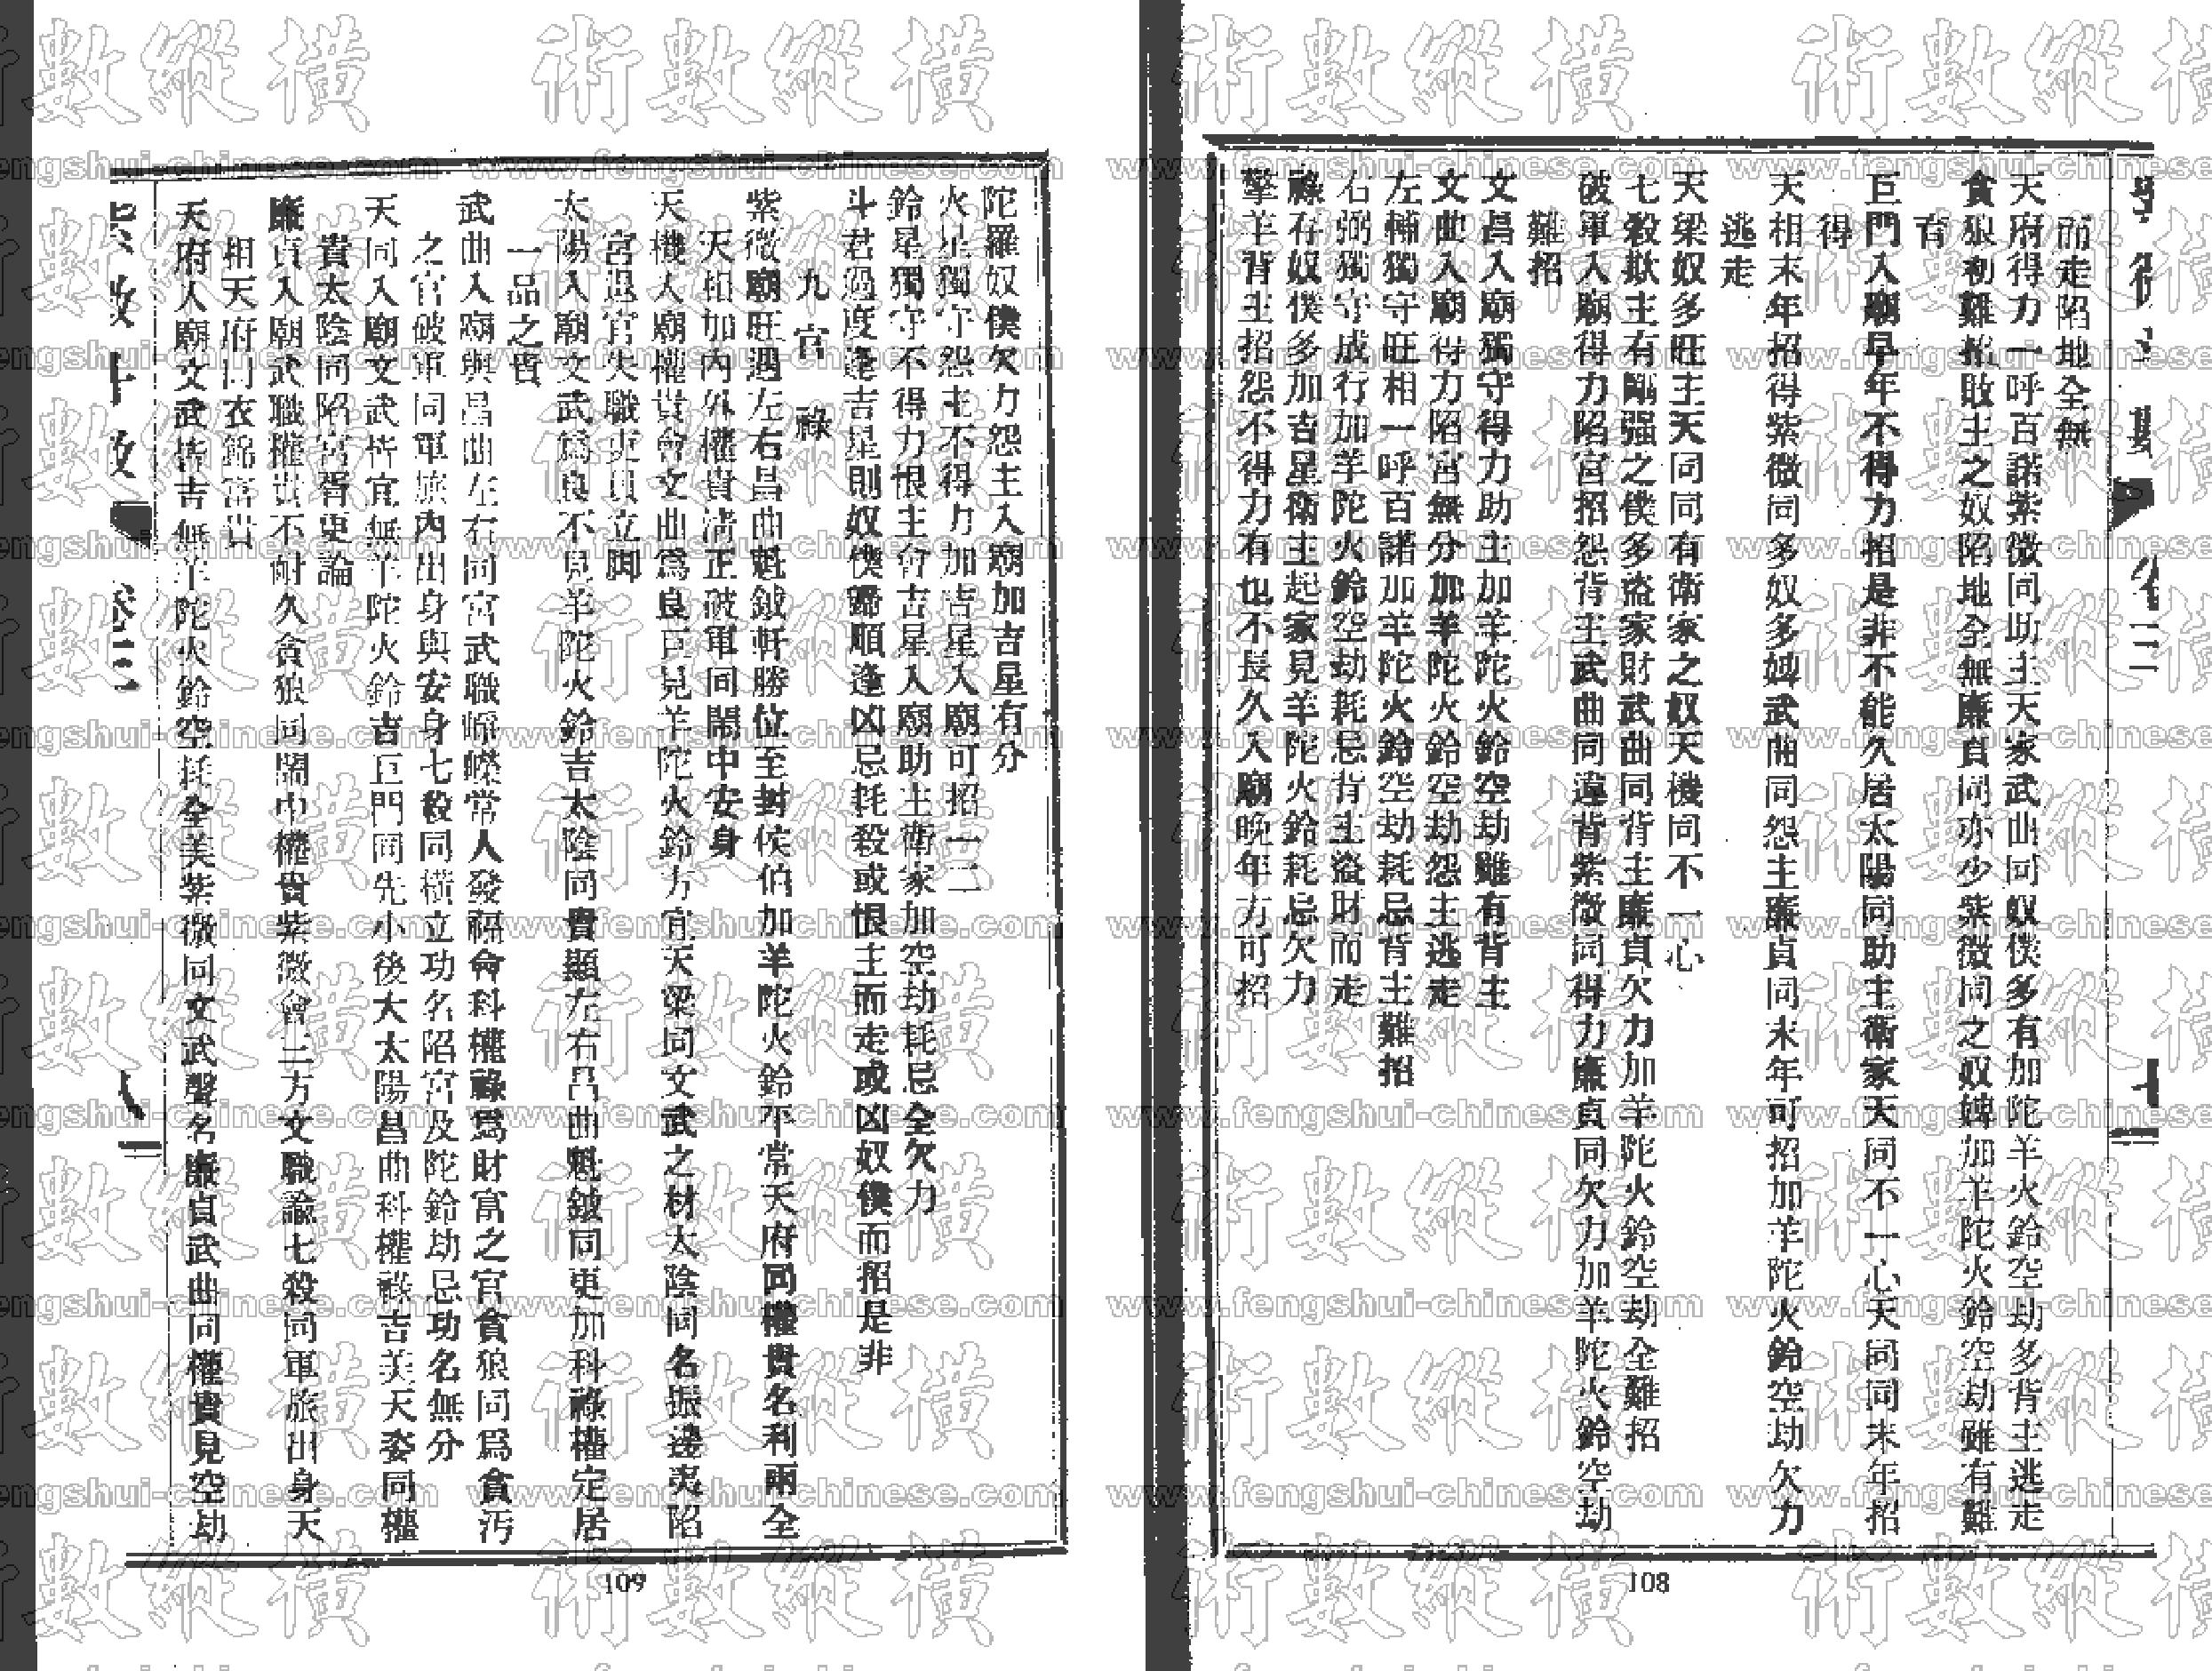 而走陷地全無
天府得力一呼百諾紫微同助主天家武曲同奴僕多有加陀羊火鈴空劫多背主逃走
貪狼初難招敗主之奴陷地全無廉貞同亦少紫微同之奴婢加羊陀火鈴空劫雖有難
育
巨門入廟早年不得力招是非不能久居太陽同助主衛家天同不一心天同同末年招
得
天相末年招得紫微同多奴多婢武曲同怨主廉貞同末年可招加羊陀火鈴空劫欠力
逃走
天梁奴多旺主天同同有衛家之奴天機同不一心
七殺欺主有剛强之僕多盜家財武曲同背主廉貞欠力加羊陀火鈴空劫全難招
破軍入廟得力陷宮招怨背主武曲同違背紫微同得力廉貞同欠力加羊陀火鈴空劫
難招
文昌入廟獨守得力助主加羊陀火鈴空劫雖有背主
文曲入廟得力陷宮無分加羊陀火鈴空劫怨主逃走
左輔獨守旺相一呼百諾加羊陀火鈴空劫耗忌背主難招
右弼獨守成行加羊陀火鈴空劫耗忌背主盜財而走
祿存奴僕多加吉星衛主起家見羊陀火鈴耗忌欠力
擎羊背主招怨不得力有也不長久入廟晚年方可招
108
陀羅奴僕欠力怨主入廟加吉星有分
火星獨守怨主不得力加吉星入廟可招一二
鈴星獨守不得力恨主會吉星入廟助主衛家加空劫耗忌全欠力
斗君過度逢吉星則奴僕歸順逢凶忌耗殺或恨主而走或凶奴僕而招是非
九官祿
紫微廟旺遇左右昌曲魁鉞軒勝位至封侯伯加羊陀火鈴平常天府同權貴名利兩全
天相加內外權貴清正破軍同鬧中安身
天機入廟權貴會文曲為良巨見羊陀火鈴方宜天梁同文武之材太陰同名振邊夷陷
宮退官失職吏員立脚
太陽入廟文武為良不見羊陀火鈴吉太陰同貴顯左右昌曲魁鉞同更加科祿權定居
一品之貴
武曲入廟與昌曲左右同宮武職崢嶸常人發福會科權祿為財富之官貪狼同為貪汚
之官破軍同軍旅內出身與安身七殺同橫立功名陷宮及陀鈴劫忌功名無分
天同入廟文武皆宜無羊陀火鈴吉巨門同先小後大太陽昌曲科權祿吉美天梁同權
貴太陰同陷宮胥吏論
廉貞入廟武職權貴不耐久貪狼同鬧中權貴紫微會三方文職論七殺同軍旅出身天
相天府同衣錦富貴
天府入廟文武皆吉無羊陀火鈴空耗全美紫微同文武聲名廉貞武曲同權貴見空劫
紫微斗數 卷三 八一
109
術數縱橫
www.fengshui-chinese.com